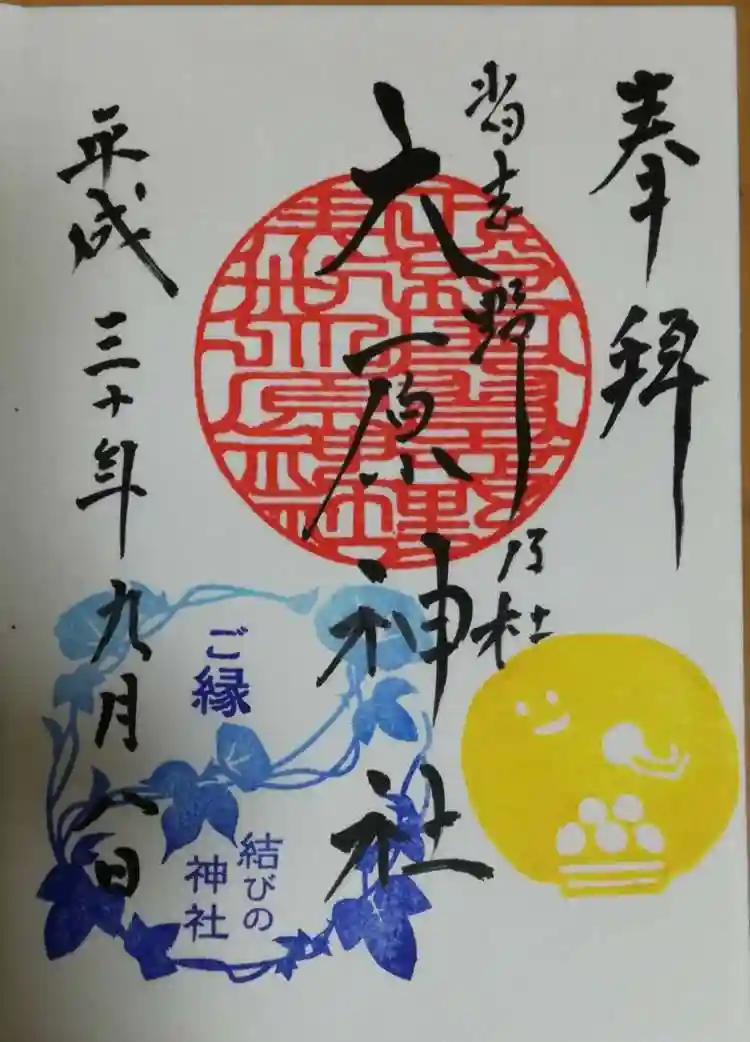 奉拝
習志野乃杜
大原神社
平成三十年九月八日
ご縁
結びの
神社